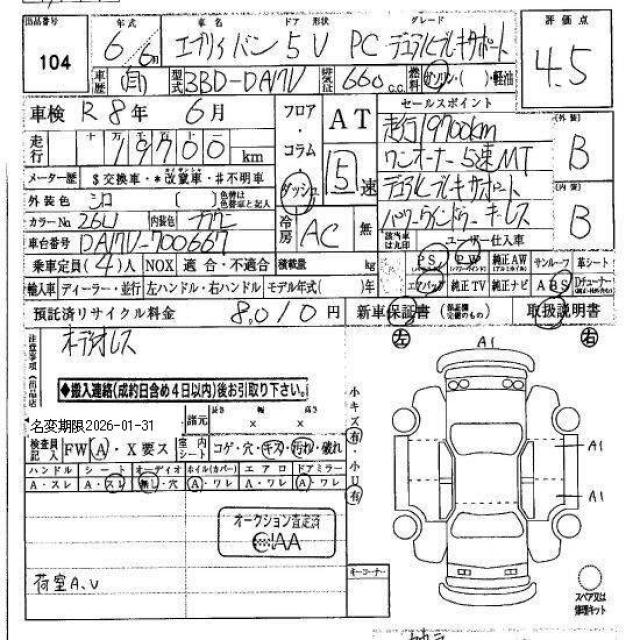 出品番号 年式 車名 ドア 形状 グレード 評価点
104 6/6月 エブリイバン 5V PC デュアルブレーキサポート 4.5
車歴 自 型式 3BD-DA17V 排気 660 c.c. 燃料 ガソリン・( )・軽油
車検 R8年 6月 フロア・コラム・ダッシュ AT 5速 セールスポイント
走行 十 万 千 百 十 19700 km 走行19700km 外装 B
ワンオーナー 5速MT
メーター歴 $交換車・*改ザン車・#不明車 デュアルブレーキサポート 内装 B
外装色 シロ ( ) 色替は色替車と記入 パワーウインドウ キーレス
カラーNo 26U 内装色 冷房 AC 無 該当車は丸印 ユーザー仕入車
車台番号 DA17V-700667
乗車定員 (4)人 NOX 適合・不適合 積載量 kg PS PW 純正AW サンルーフ 革シート
輸入車 ディーラー・並行 左ハンドル・右ハンドル モデル年式( )年 エアバッグ 純正TV 純正ナビ ABS Dチューナー
預託済リサイクル料金 8,010円 新車保証書 取扱説明書
注意事項(出品店) 左 右
A1
◆搬入連絡(成約日含め4日以内)後お引取り下さい。
名変期限2026-01-31 諸元 長さ 幅 高さ × ×
小キズ有・小U有
検査員記入 FW A・X要ス 室内シート コゲ・穴・キズ・汚れ・破れ
ハンドル シート オーディオ ホイル(カバー) エアロ ドアミラー
A・スレ A・スレ 無し・穴 A・ワレ A・ワレ A・ワレ
A1
A1
オークション査定済
AA
荷室A、U
キーコーナー
スペア又は修理キット